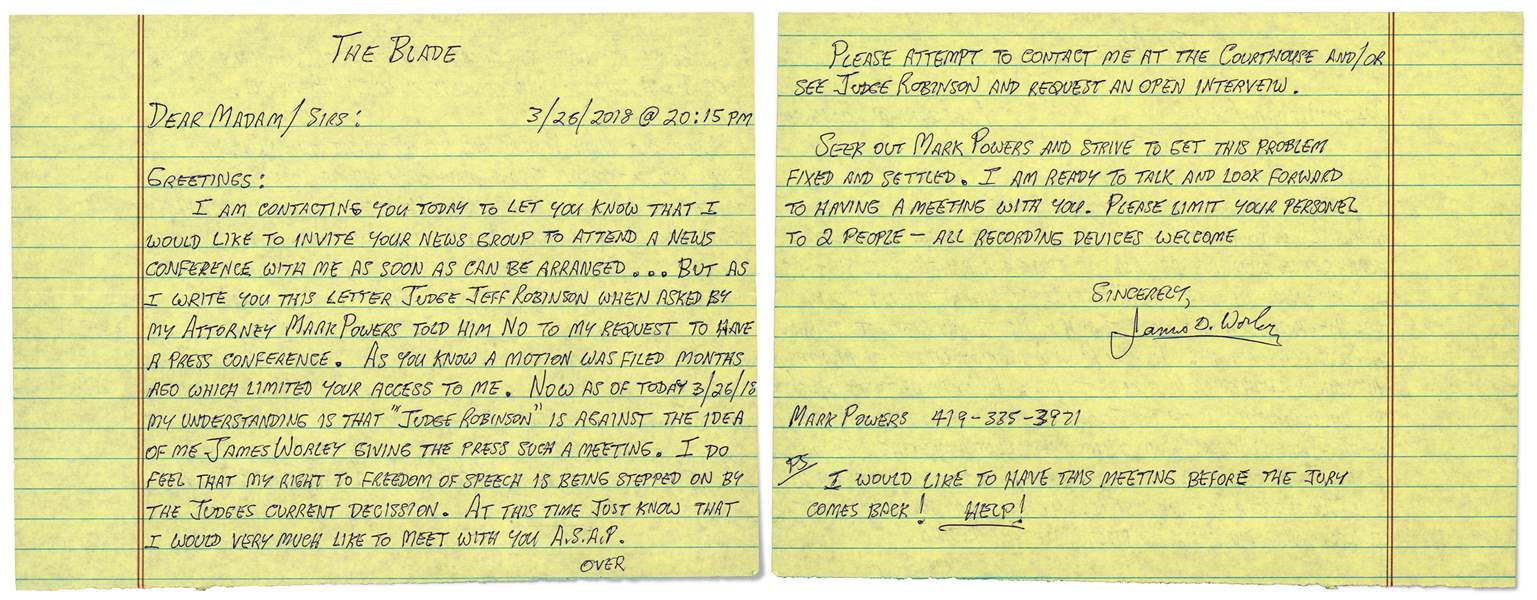 THE BLADE
DEAR MADAM/SIRS: 3/26/2018 @ 20:15 PM
GREETINGS:
I AM CONTACTING YOU TODAY TO LET YOU KNOW THAT I
WOULD LIKE TO INVITE YOUR NEWS GROUP TO ATTEND A NEWS
CONFERENCE WITH ME AS SOON AS CAN BE ARRANGED... BUT AS
I WRITE YOU THIS LETTER JUDGE JEFF ROBINSON WHEN ASKED BY
MY ATTORNEY MARK POWERS TOLD HIM NO TO MY REQUEST TO HAVE
A PRESS CONFERENCE. AS YOU KNOW A MOTION WAS FILED MONTHS
AGO WHICH LIMITED YOUR ACCESS TO ME. NOW AS OF TODAY 3/26/18
MY UNDERSTANDING IS THAT "JUDGE ROBINSON" IS AGAINST THE IDEA
OF ME JAMES WORLEY GIVING THE PRESS SUCH A MEETING. I DO
FEEL THAT MY RIGHT TO FREEDOM OF SPEECH IS BEING STEPPED ON BY
THE JUDGES CURRENT DECISSION. AT THIS TIME JUST KNOW THAT
I WOULD VERY MUCH LIKE TO MEET WITH YOU A.S.A.P.
OVER
PLEASE ATTEMPT TO CONTACT ME AT THE COURTHOUSE AND/OR
SEE JUDGE ROBINSON AND REQUEST AN OPEN INTERVEIW.
SEEK OUT MARK POWERS AND STRIVE TO GET THIS PROBLEM
FIXED AND SETTLED. I AM READY TO TALK AND LOOK FORWARD
TO HAVING A MEETING WITH YOU. PLEASE LIMIT YOUR PERSONEL
TO 2 PEOPLE - ALL RECORDING DEVICES WELCOME
SINCERELY,
James D. Worley
MARK POWERS 419-335-3971
PS
I WOULD LIKE TO HAVE THIS MEETING BEFORE THE JURY
COMES BACK! HELP!